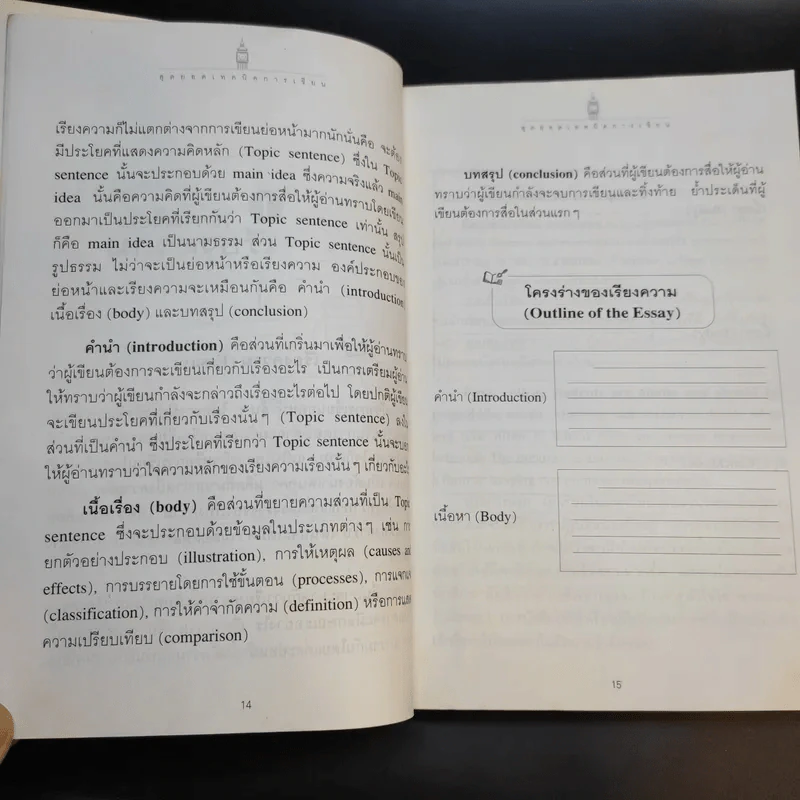 สุดยอดเทคนิคการเขียน
เรียงความก็ไม่แตกต่างจากการเขียนย่อหน้ามากนักนั่นคือ จะต้อง
มีประโยคที่แสดงความคิดหลัก (Topic sentence) ซึ่งใน Topic
sentence นั้นจะประกอบด้วย main idea ซึ่งความจริงแล้ว main
idea นั้นคือความคิดที่ผู้เขียนต้องการสื่อให้ผู้อ่านทราบโดยเขียน
ออกมาเป็นประโยคที่เรียกกันว่า Topic sentence เท่านั้น สรุป
ก็คือ main idea เป็นนามธรรม ส่วน Topic sentence นั้นเป็น
รูปธรรม ไม่ว่าจะเป็นย่อหน้าหรือเรียงความ องค์ประกอบของ
ย่อหน้าและเรียงความจะเหมือนกันคือ คำนำ (introduction)
เนื้อเรื่อง (body) และบทสรุป (conclusion)
คำนำ (introduction) คือส่วนที่เกริ่นมาเพื่อให้ผู้อ่านทราบ
ว่าผู้เขียนต้องการจะเขียนเกี่ยวกับเรื่องอะไร เป็นการเตรียมผู้อ่าน
ให้ทราบว่าผู้เขียนกำลังจะกล่าวถึงเรื่องอะไรต่อไป โดยปกติผู้เขียน
จะเขียนประโยคที่เกี่ยวกับเรื่องนั้นๆ (Topic sentence) ลงใน
ส่วนที่เป็นคำนำ ซึ่งประโยคที่เรียกว่า Topic sentence นั้นจะบอก
ให้ผู้อ่านทราบว่าใจความหลักของเรียงความเรื่องนั้นๆ เกี่ยวกับอะไร
เนื้อเรื่อง (body) คือส่วนที่ขยายความส่วนที่เป็น Topic
sentence ซึ่งจะประกอบด้วยข้อมูลในประเภทต่างๆ เช่น การ
ยกตัวอย่างประกอบ (illustration), การให้เหตุผล (causes and
effects), การบรรยายโดยการใช้ขั้นตอน (processes), การแจกแจง
(classification), การให้คำจำกัดความ (definition) หรือการแสดง
ความเปรียบเทียบ (comparison)
14
สุดยอดเทคนิคการเขียน
บทสรุป (conclusion) คือส่วนที่ผู้เขียนต้องการสื่อให้ผู้อ่าน
ทราบว่าผู้เขียนกำลังจะจบการเขียนและทิ้งท้าย ย้ำประเด็นที่ผู้
เขียนต้องการสื่อในส่วนแรกๆ
โครงร่างของเรียงความ
(Outline of the Essay)
คำนำ (Introduction)
เนื้อหา (Body)
15